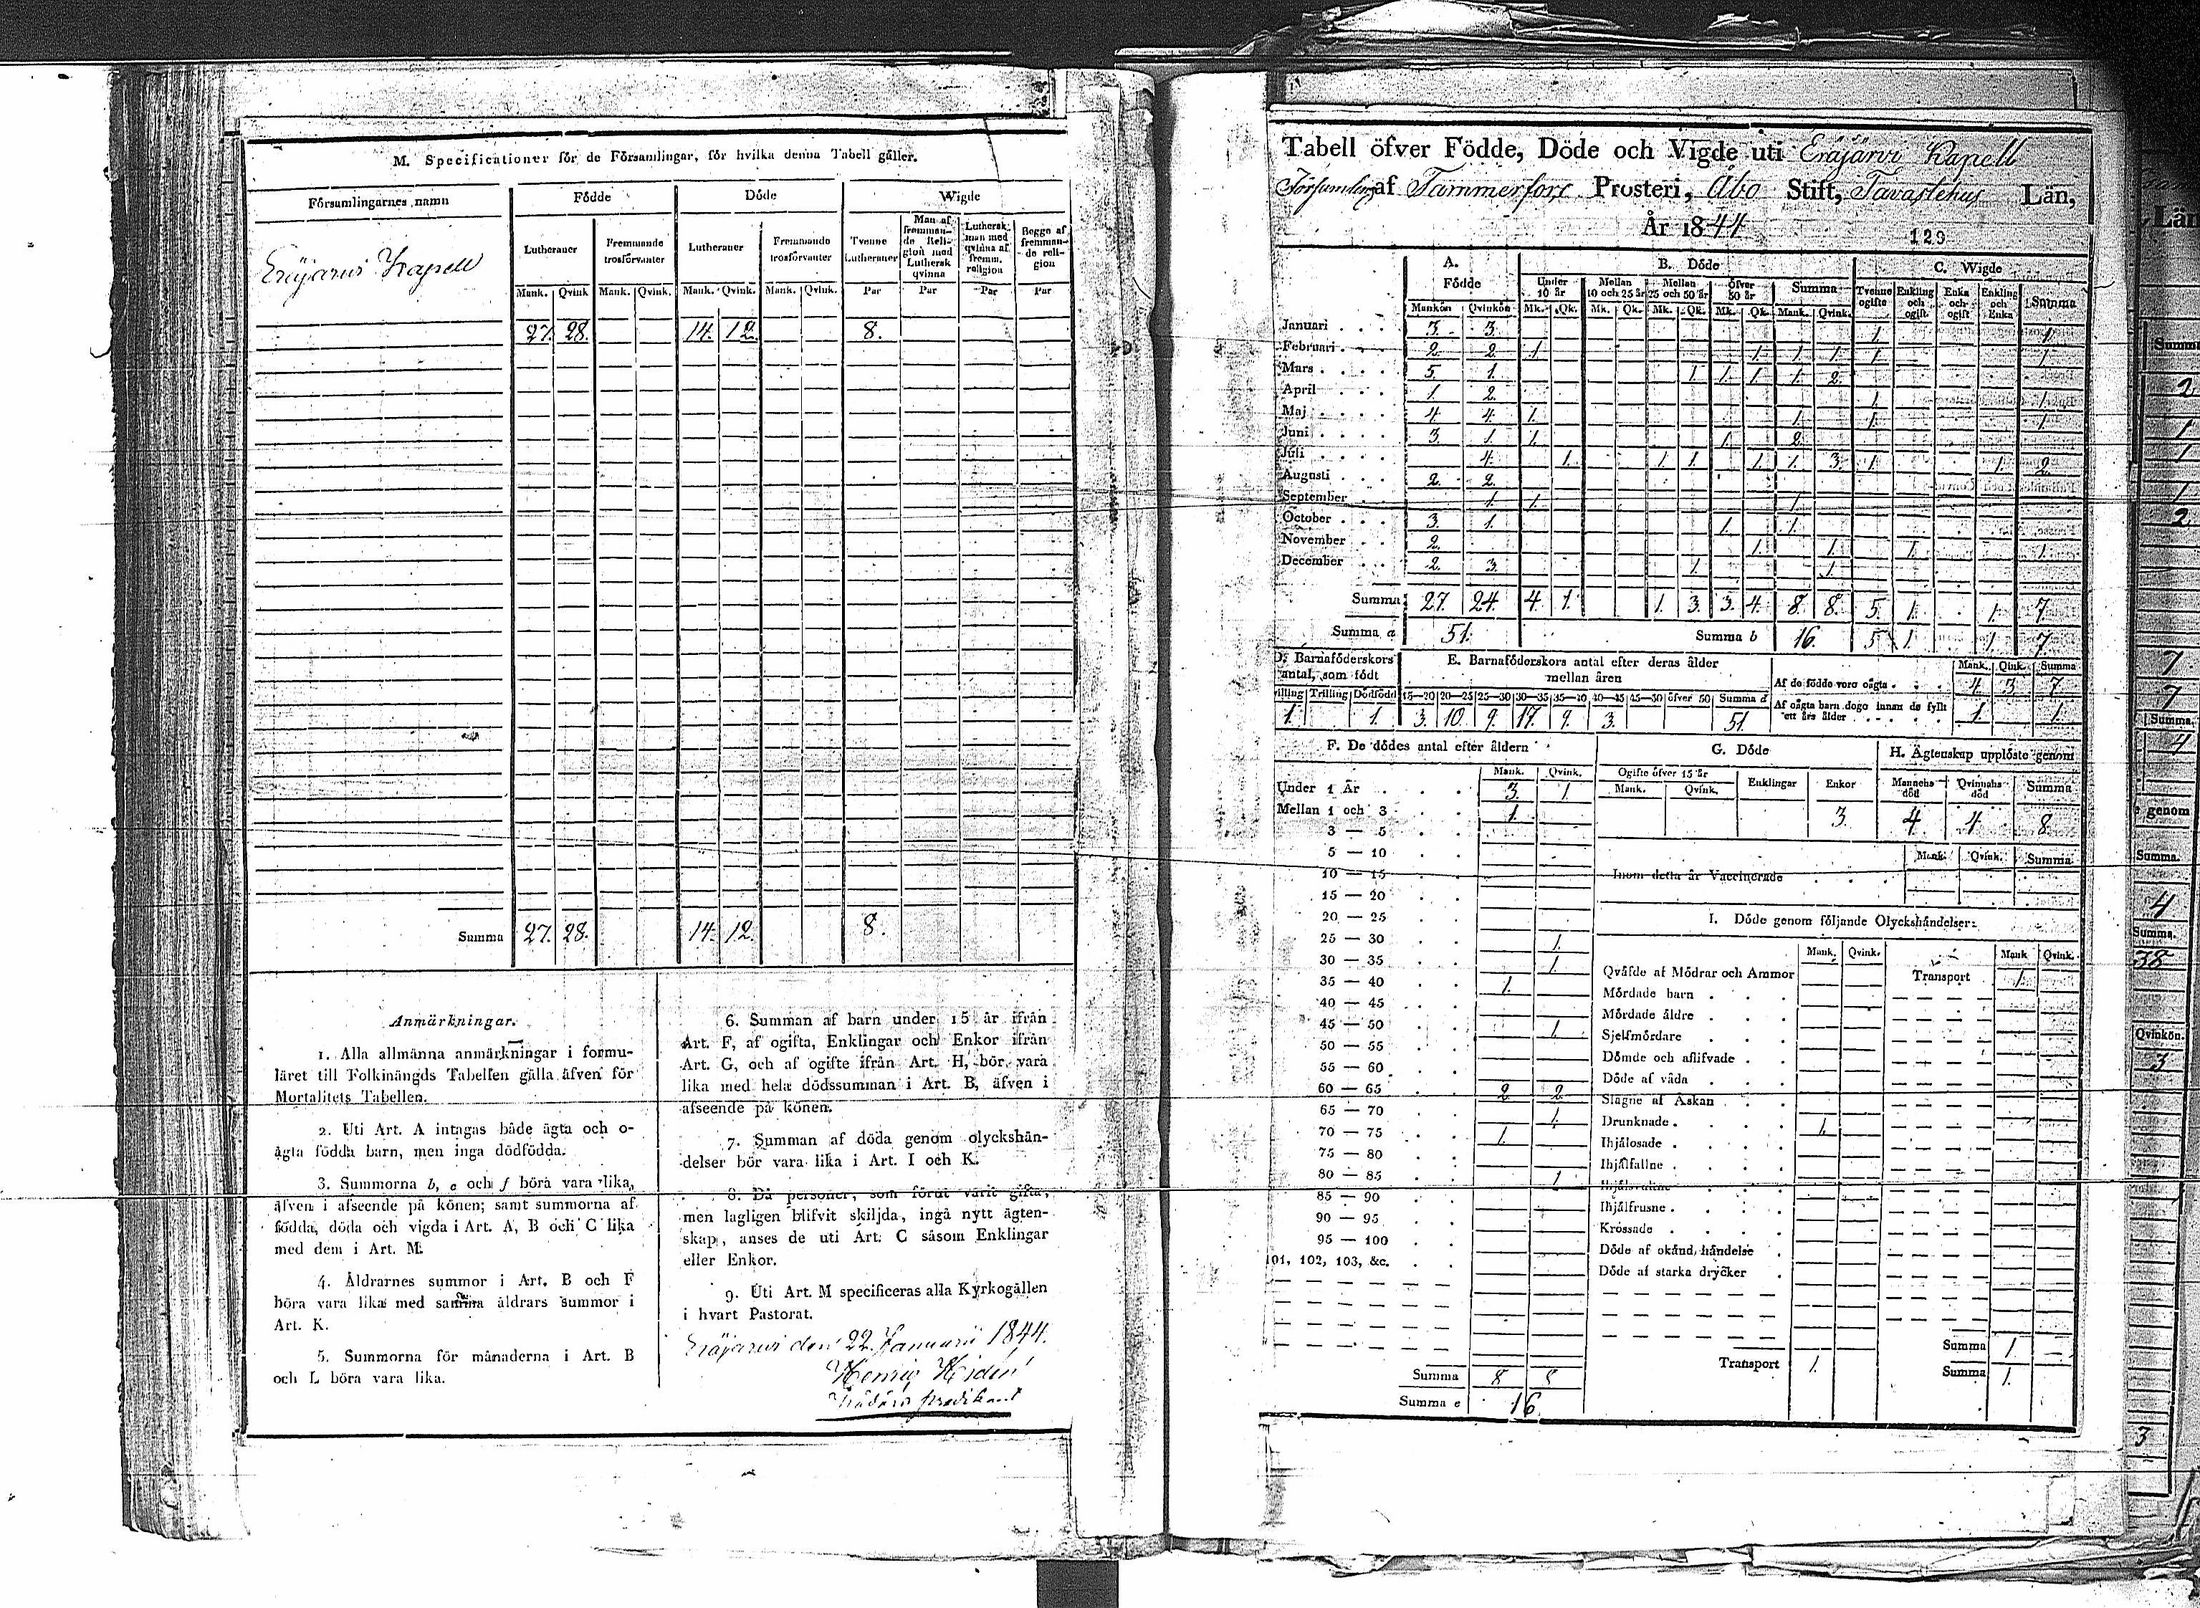 M. Specificationer för de Församlingar, för hvilka denna Tabell gäller.
Församlingarnes namn
Födde
Döde
Wigde
Lutheraner
Fremmande trosförvanter
Lutheraner
Fremmande trosförvanter
Tvenne Lutheraner
Man af fremmande Religion med Luthersk qvinna
Luthersk man med qvinna af fremm. religion
Begge af fremmande religion
Mank. Qvink Mank. Qvink. Mank. Qvink. Mank. Qvink. Par Par Par Par
Eräjärvi Kapell
27. 28. 14. 12. 8.
Summa 27. 28. 14. 12. 8.
Anmärkningar.
1. Alla allmänna anmärkningar i formu-
läret till Folkmängds Tabellen gälla äfven för
Mortalitets Tabellen.
2. Uti Art. A intagas både ägta och o-
ägta födda barn, men inga dödfödda.
3. Summorna b, e och f böra vara lika,
äfven i afseende på könen; samt summorna af
födda, döda och vigda i Art. A, B och C lika
med dem i Art. M.
4. Åldrarnes summor i Art. B och F
böra vara lika med samma åldrars summor i
Art. K.
5. Summorna för månaderna i Art. B
och L böra vara lika.
6. Summan af barn under 15 år ifrån
Art. F, af ogifta, Enklingar och Enkor ifrån
Art. G, och af ogifte ifrån Art. H, bör vara
lika med hela dödssumman i Art. B, äfven i
afseende på könen.
7. Summan af döda genom olyckshän-
delser bör vara lika i Art. I och K.
8. Då personer, som förut varit gifta,
men lagligen blifvit skiljda, ingå nytt ägten-
skap, anses de uti Art. C såsom Enklingar
eller Enkor.
9. Uti Art. M specificeras alla Kyrkogällen
i hvart Pastorat.
Eräjärvi den 22 Januarii 1844.
Henric
Tabell öfver Födde, Döde och Vigde uti Eräjärvi Kapell
Församling af Tammerfors Prosteri, Åbo Stift, Tavastehus Län,
År 1844
129
A. Födde
B. Döde
C. Wigde
Under 10 år
Mellan 10 och 25 år
Mellan 25 och 50 år
Öfver 50 år
Summa
Tvenne ogifte
Enkling och ogift
Enka och ogift
Enkling och Enka
Summa
Mankön Qvinkön Mk. Qk. Mk. Qk. Mk. Qk. Mk. Qk. Mank. Qvink.
Januari 3. 3. 1. 1.
Februari 2. 2. 1. 1. 1. 1. 1. 1.
Mars 5. 1. 1. 1. 1. 1. 2.
April 1. 2. 1. 1.
Maj 4. 4. 1. 1. 1. 1.
Juni 3. 1. 1. 1. 2.
Juli 4. 1. 1. 1. 1. 1. 3. 1. 1. 2.
Augusti 2. 2.
September 1. 1. 1.
October 3. 1. 1. 1.
November 2. 1. 1. 1. 1.
December 2. 3. 1. 1.
Summa 27. 24. 4. 1. 1. 3. 3. 4. 8. 8. 5. 1. 1. 7.
Summa a 51. Summa b 16. 5 1. 1. 7.
D. Barnaföderskors antal, som födt
Trilling Dödfödd
1. 1.
E. Barnaföderskors antal efter deras ålder
mellan åren
15—20 20—25 25—30 30—35 35—40 40—45 45—50 öfver 50 Summa d
3. 10. 9. 17. 9. 3. 51.
Mank. Qvink. Summa
Af de födde voro oägta 4. 3. 7.
Af oägta barn dogo innan de fyllt
ett års ålder 1. 1.
F. De dödes antal efter åldern
Mank. Qvink.
Under 1 År 3. 1.
Mellan 1 och 3 1.
3 — 5
5 — 10
10 — 15
15 — 20
20 — 25
25 — 30 1.
30 — 35 1.
35 — 40 1.
40 — 45
45 — 50 1.
50 — 55
55 — 60
60 — 65 2. 2.
65 — 70 1.
70 — 75 1.
75 — 80
80 — 85 1.
85 — 90
90 — 95
95 — 100
101, 102, 103, &c.
Summa 8 8
Summa e 16
G. Döde
Ogifte öfver 15 år
Mank. Qvink.
Enklingar
Enkor
3.
H. Ägtenskap upplöste genom
Mannens död
Qvinnans död
Summa
4. 4. 8.
Mank. Qvink. Summa.
Inom detta år Vaccinerade
I. Döde genom följande Olyckshändelser:
Mank. Qvink. Mank Qvink.
Qväfde af Mödrar och Ammor
Transport 1.
Mördade barn
Mördade äldre
Sjelfmördare
Dömde och aflifvade
Döde af våda
Slagne af Åskan
Drunknade 1.
Ihjälosade
Ihjälfallne
Ihjälfrusne
Krossade
Döde af okänd händelse
Döde af starka drycker
Summa 1.
Transport 1.
Summa 1.
Län
Summa
2
1
1
1
2
7
7
Summa.
4
genom
Summa.
4
Summa.
38
Qvinkön.
3
3